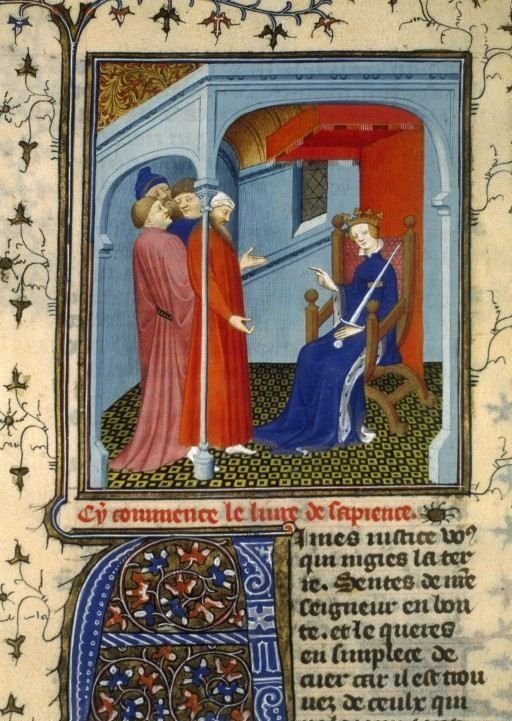 Cy commence le liure de sapience.
Aimes iustice vos
qui iugies la ter
re. Sentes de nre
seigneur en bon
te. et le queres
en simplece de
cuer car il est trou
uez de ceulx qui